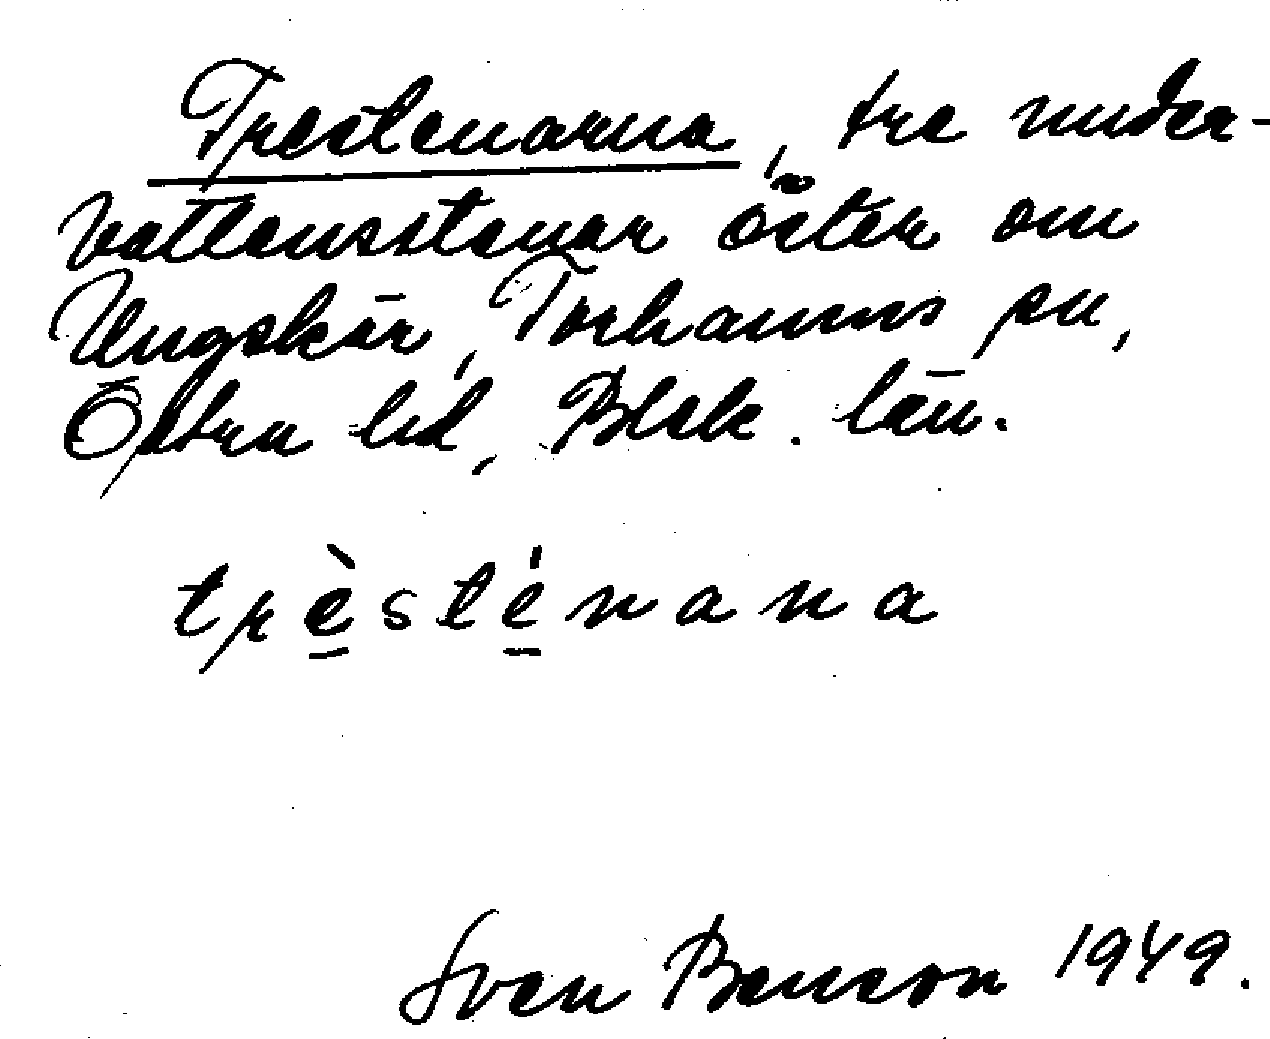 Trestenarna, tre under-
vattensstenar öster om
Ungskär, Torhamns sn,
Östra hd, Blek. län.
trè̱sté̱nana
Sven Benson 1949.